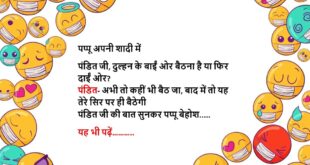 पप्पू अपनी शादी में
पंडित जी, दुल्हन के बाईं ओर बैठना है या फिर
दाईं ओर?
पंडित- अभी तो कहीं भी बैठ जा, बाद में तो यह
तेरे सिर पर ही बैठेगी
पंडित जी की बात सुनकर पप्पू बेहोश.....
यह भी पढ़ें...........